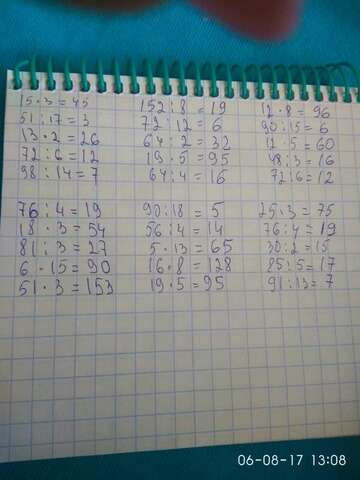 15 · 3 = 45
51 : 17 = 3
13 · 2 = 26
72 : 6 = 12
98 : 14 = 7
152 : 8 = 19
72 : 12 = 6
64 : 2 = 32
19 · 5 = 95
64 : 4 = 16
12 · 8 = 96
90 : 15 = 6
12 · 5 = 60
48 : 3 = 16
72 : 6 = 12
76 : 4 = 19
18 · 3 = 54
81 : 3 = 27
6 · 15 = 90
51 · 3 = 153
90 : 18 = 5
56 : 4 = 14
5 · 13 = 65
16 · 8 = 128
19 · 5 = 95
25 · 3 = 75
76 : 4 = 19
30 : 2 = 15
85 : 5 = 17
91 : 13 = 7
06-08-17 13:08